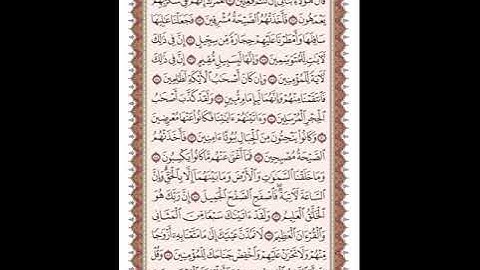 قَالَ هَٰٓؤُلَآءِ بَنَاتِىٓ إِن كُنتُمْ فَٰعِلِينَ ۝ لَعَمْرُكَ إِنَّهُمْ لَفِى سَكْرَتِهِمْ
يَعْمَهُونَ ۝ فَأَخَذَتْهُمُ ٱلصَّيْحَةُ مُشْرِقِينَ ۝ فَجَعَلْنَا عَٰلِيَهَا
سَافِلَهَا وَأَمْطَرْنَا عَلَيْهِمْ حِجَارَةً مِّن سِجِّيلٍ ۝ إِنَّ فِى ذَٰلِكَ
لَءَايَٰتٍ لِّلْمُتَوَسِّمِينَ ۝ وَإِنَّهَا لَبِسَبِيلٍ مُّقِيمٍ ۝ إِنَّ فِى ذَٰلِكَ
لَءَايَةً لِّلْمُؤْمِنِينَ ۝ وَإِن كَانَ أَصْحَٰبُ ٱلْأَيْكَةِ لَظَٰلِمِينَ ۝
فَٱنتَقَمْنَا مِنْهُمْ وَإِنَّهُمَا لَبِإِمَامٍ مُّبِينٍ ۝ وَلَقَدْ كَذَّبَ أَصْحَٰبُ
ٱلْحِجْرِ ٱلْمُرْسَلِينَ ۝ وَءَاتَيْنَٰهُمْ ءَايَٰتِنَا فَكَانُوا۟ عَنْهَا مُعْرِضِينَ
۝ وَكَانُوا۟ يَنْحِتُونَ مِنَ ٱلْجِبَالِ بُيُوتًا ءَامِنِينَ ۝ فَأَخَذَتْهُمُ
ٱلصَّيْحَةُ مُصْبِحِينَ ۝ فَمَآ أَغْنَىٰ عَنْهُم مَّا كَانُوا۟ يَكْسِبُونَ ۝
وَمَا خَلَقْنَا ٱلسَّمَٰوَٰتِ وَٱلْأَرْضَ وَمَا بَيْنَهُمَآ إِلَّا بِٱلْحَقِّ ۗ وَإِنَّ
ٱلسَّاعَةَ لَءَاتِيَةٌ ۖ فَٱصْفَحِ ٱلصَّفْحَ ٱلْجَمِيلَ ۝ إِنَّ رَبَّكَ هُوَ
ٱلْخَلَّٰقُ ٱلْعَلِيمُ ۝ وَلَقَدْ ءَاتَيْنَٰكَ سَبْعًا مِّنَ ٱلْمَثَانِى
وَٱلْقُرْءَانَ ٱلْعَظِيمَ ۝ لَا تَمُدَّنَّ عَيْنَيْكَ إِلَىٰ مَا مَتَّعْنَا بِهِۦٓ أَزْوَٰجًا
مِّنْهُمْ وَلَا تَحْزَنْ عَلَيْهِمْ وَٱخْفِضْ جَنَاحَكَ لِلْمُؤْمِنِينَ ۝ وَقُلْ